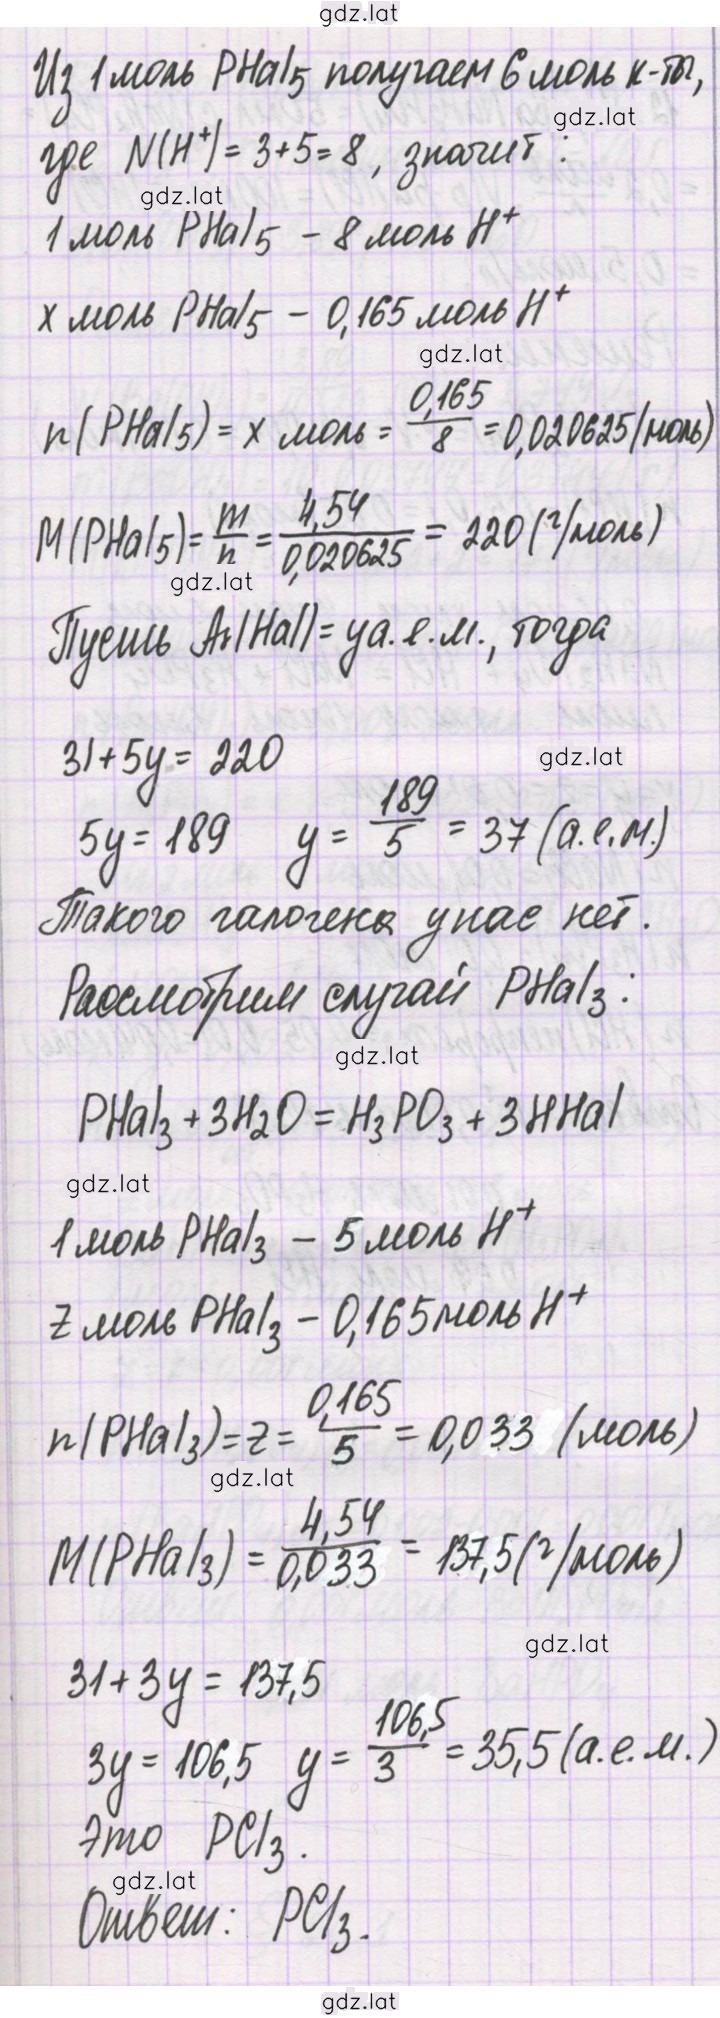 gdz.lat
Из 1 моль PHal₅ получаем 6 моль к-ты,
gdz.lat
где N(H⁺) = 3+5 = 8, значит:
gdz.lat
1 моль PHal₅ – 8 моль H⁺
x моль PHal₅ – 0,165 моль H⁺
gdz.lat
n(PHal₅) = x моль = 0,165/8 = 0,020625 (моль)
M(PHal₅) = m/n = 4,54/0,020625 = 220 (г/моль)
gdz.lat
Пусть Ar(Hal) = y а.е.м., тогда
31+5y = 220
gdz.lat
5y = 189 y = 189/5 = 37 (а.е.м.)
Такого галогена у нас нет.
Рассмотрим случай PHal₃:
gdz.lat
PHal₃ + 3H₂O = H₃PO₃ + 3HHal
gdz.lat
1 моль PHal₃ – 5 моль H⁺
z моль PHal₃ – 0,165 моль H⁺
n(PHal₃) = z = 0,165/5 = 0,033 (моль)
gdz.lat
M(PHal₃) = 4,54/0,033 = 137,5 (г/моль)
gdz.lat
31+3y = 137,5
3y = 106,5 y = 106,5/3 = 35,5 (а.е.м.)
Это PCl₃.
gdz.lat
Ответ: PCl₃.
gdz.lat